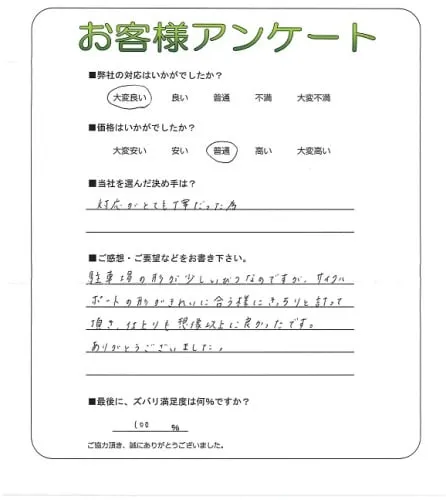 お客様アンケート
■弊社の対応はいかがでしたか？
大変良い 良い 普通 不満 大変不満
■価格はいかがでしたか？
大変安い 安い 普通 高い 大変高い
■当社を選んだ決め手は？
対応がとても丁寧だった為
■ご感想・ご要望などをお書き下さい。
駐車場の形が少しいびつなのですが、サイクル
ポートの形がきれいに合う様にきっちりと計って
頂き、仕上りも想像以上に良かったです。
ありがとうございました。
■最後に、ズバリ満足度は何％ですか？
100 ％
ご協力頂き、誠にありがとうございました。